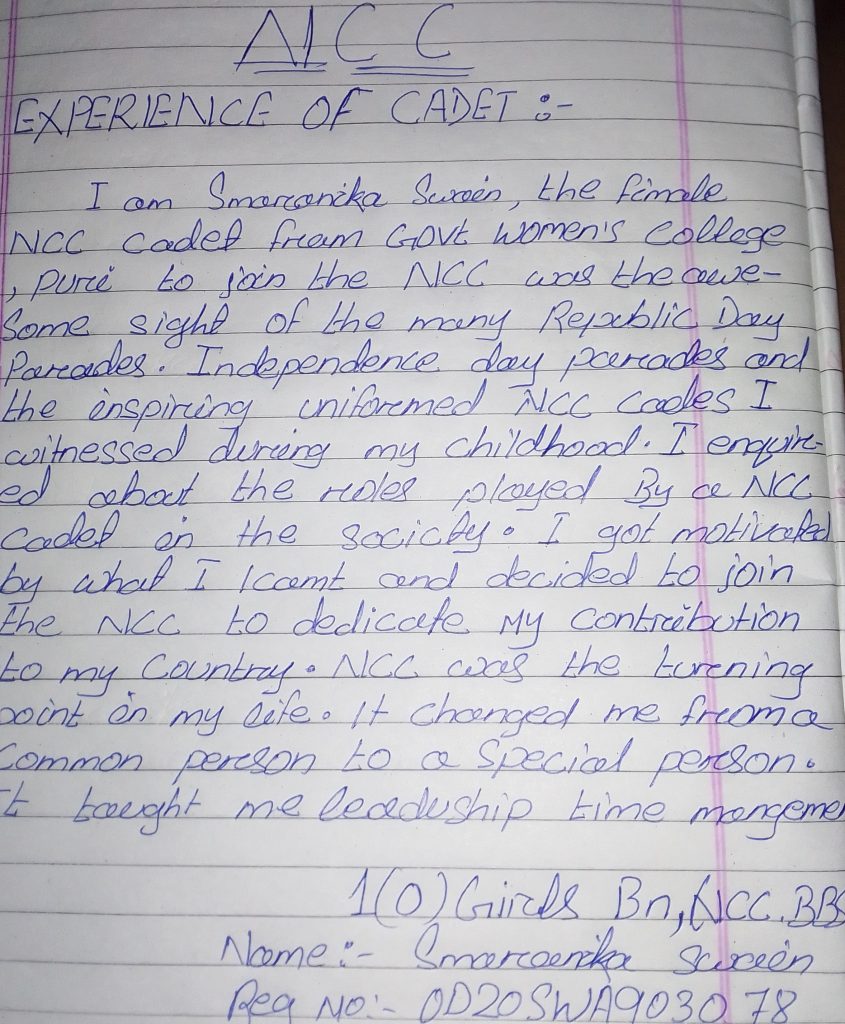 NCC
EXPERIENCE OF CADET :-
I am Smaranika Swain, the female
NCC Cadet from GOVt women's College
, Puri to join the NCC was the awe-
Some sight of the many Republic Day
Parades. Independence day parades and
the inspiring uniformed NCC cades I
witnessed during my childhood. I enquir-
ed about the roles played By a NCC
Cadet in the society. I got motivated
by what I learnt and decided to join
the NCC to dedicate My Contribution
to my Country. NCC was the turning
point in my life. It changed me from a
Common person to a Special person.
It taught me leadership time mangeme
1(0) Girls Bn, NCC. BBS
Name :- Smaranika Swain
Reg No :- OD20SWA903078